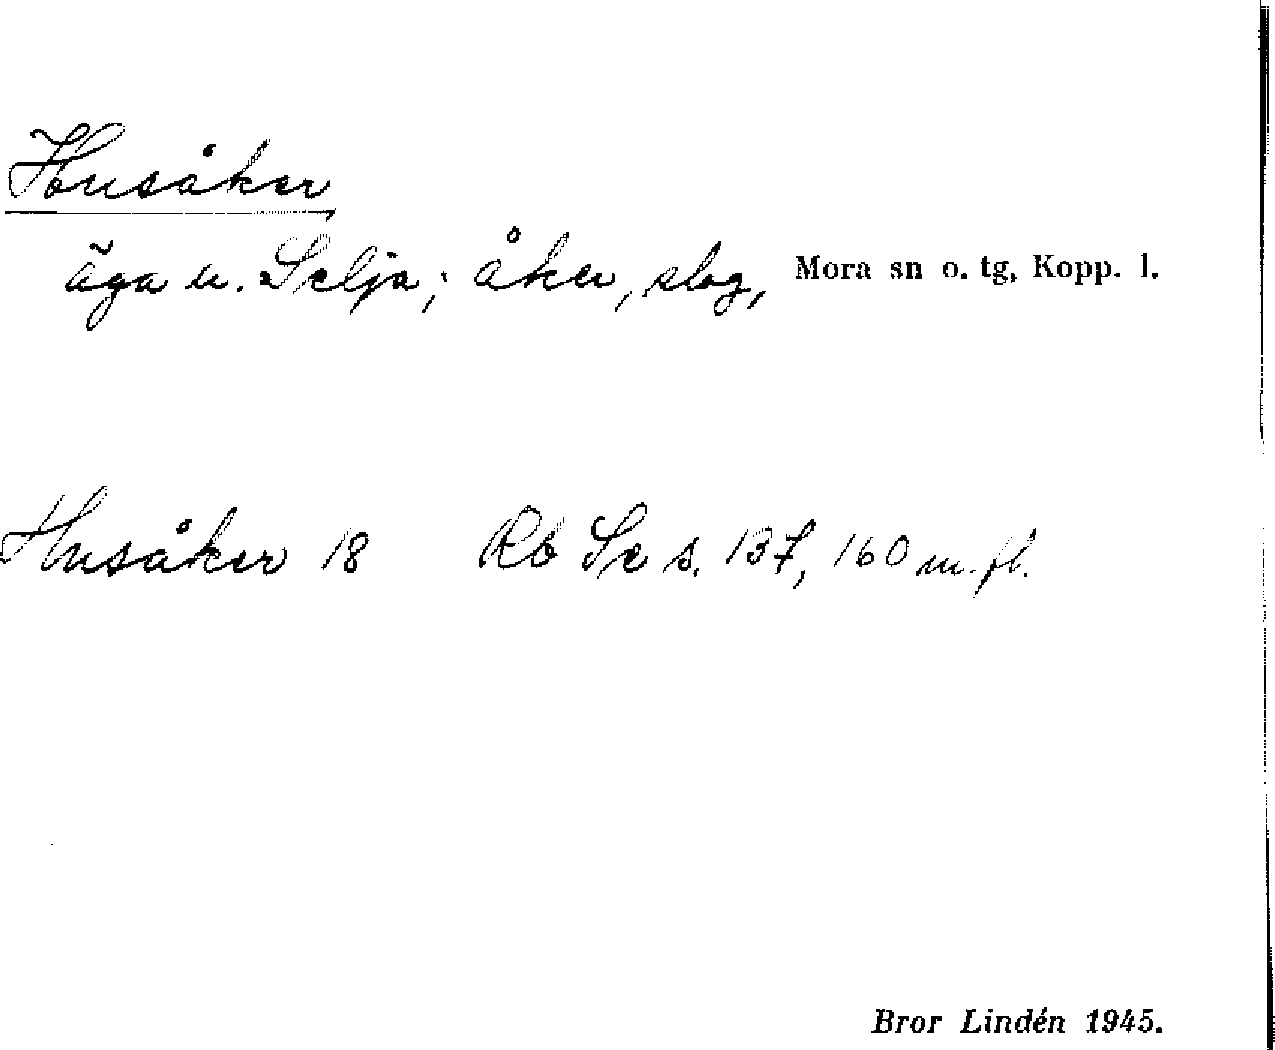 Husåker
äga u. Selja; åker, slog, Mora sn o. tg, Kopp. l.
Husåker 18 Rb Se s. 137, 160 m.fl.
Bror Lindén 1945.